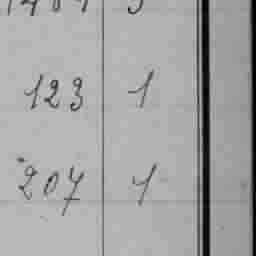 123 1
207 1